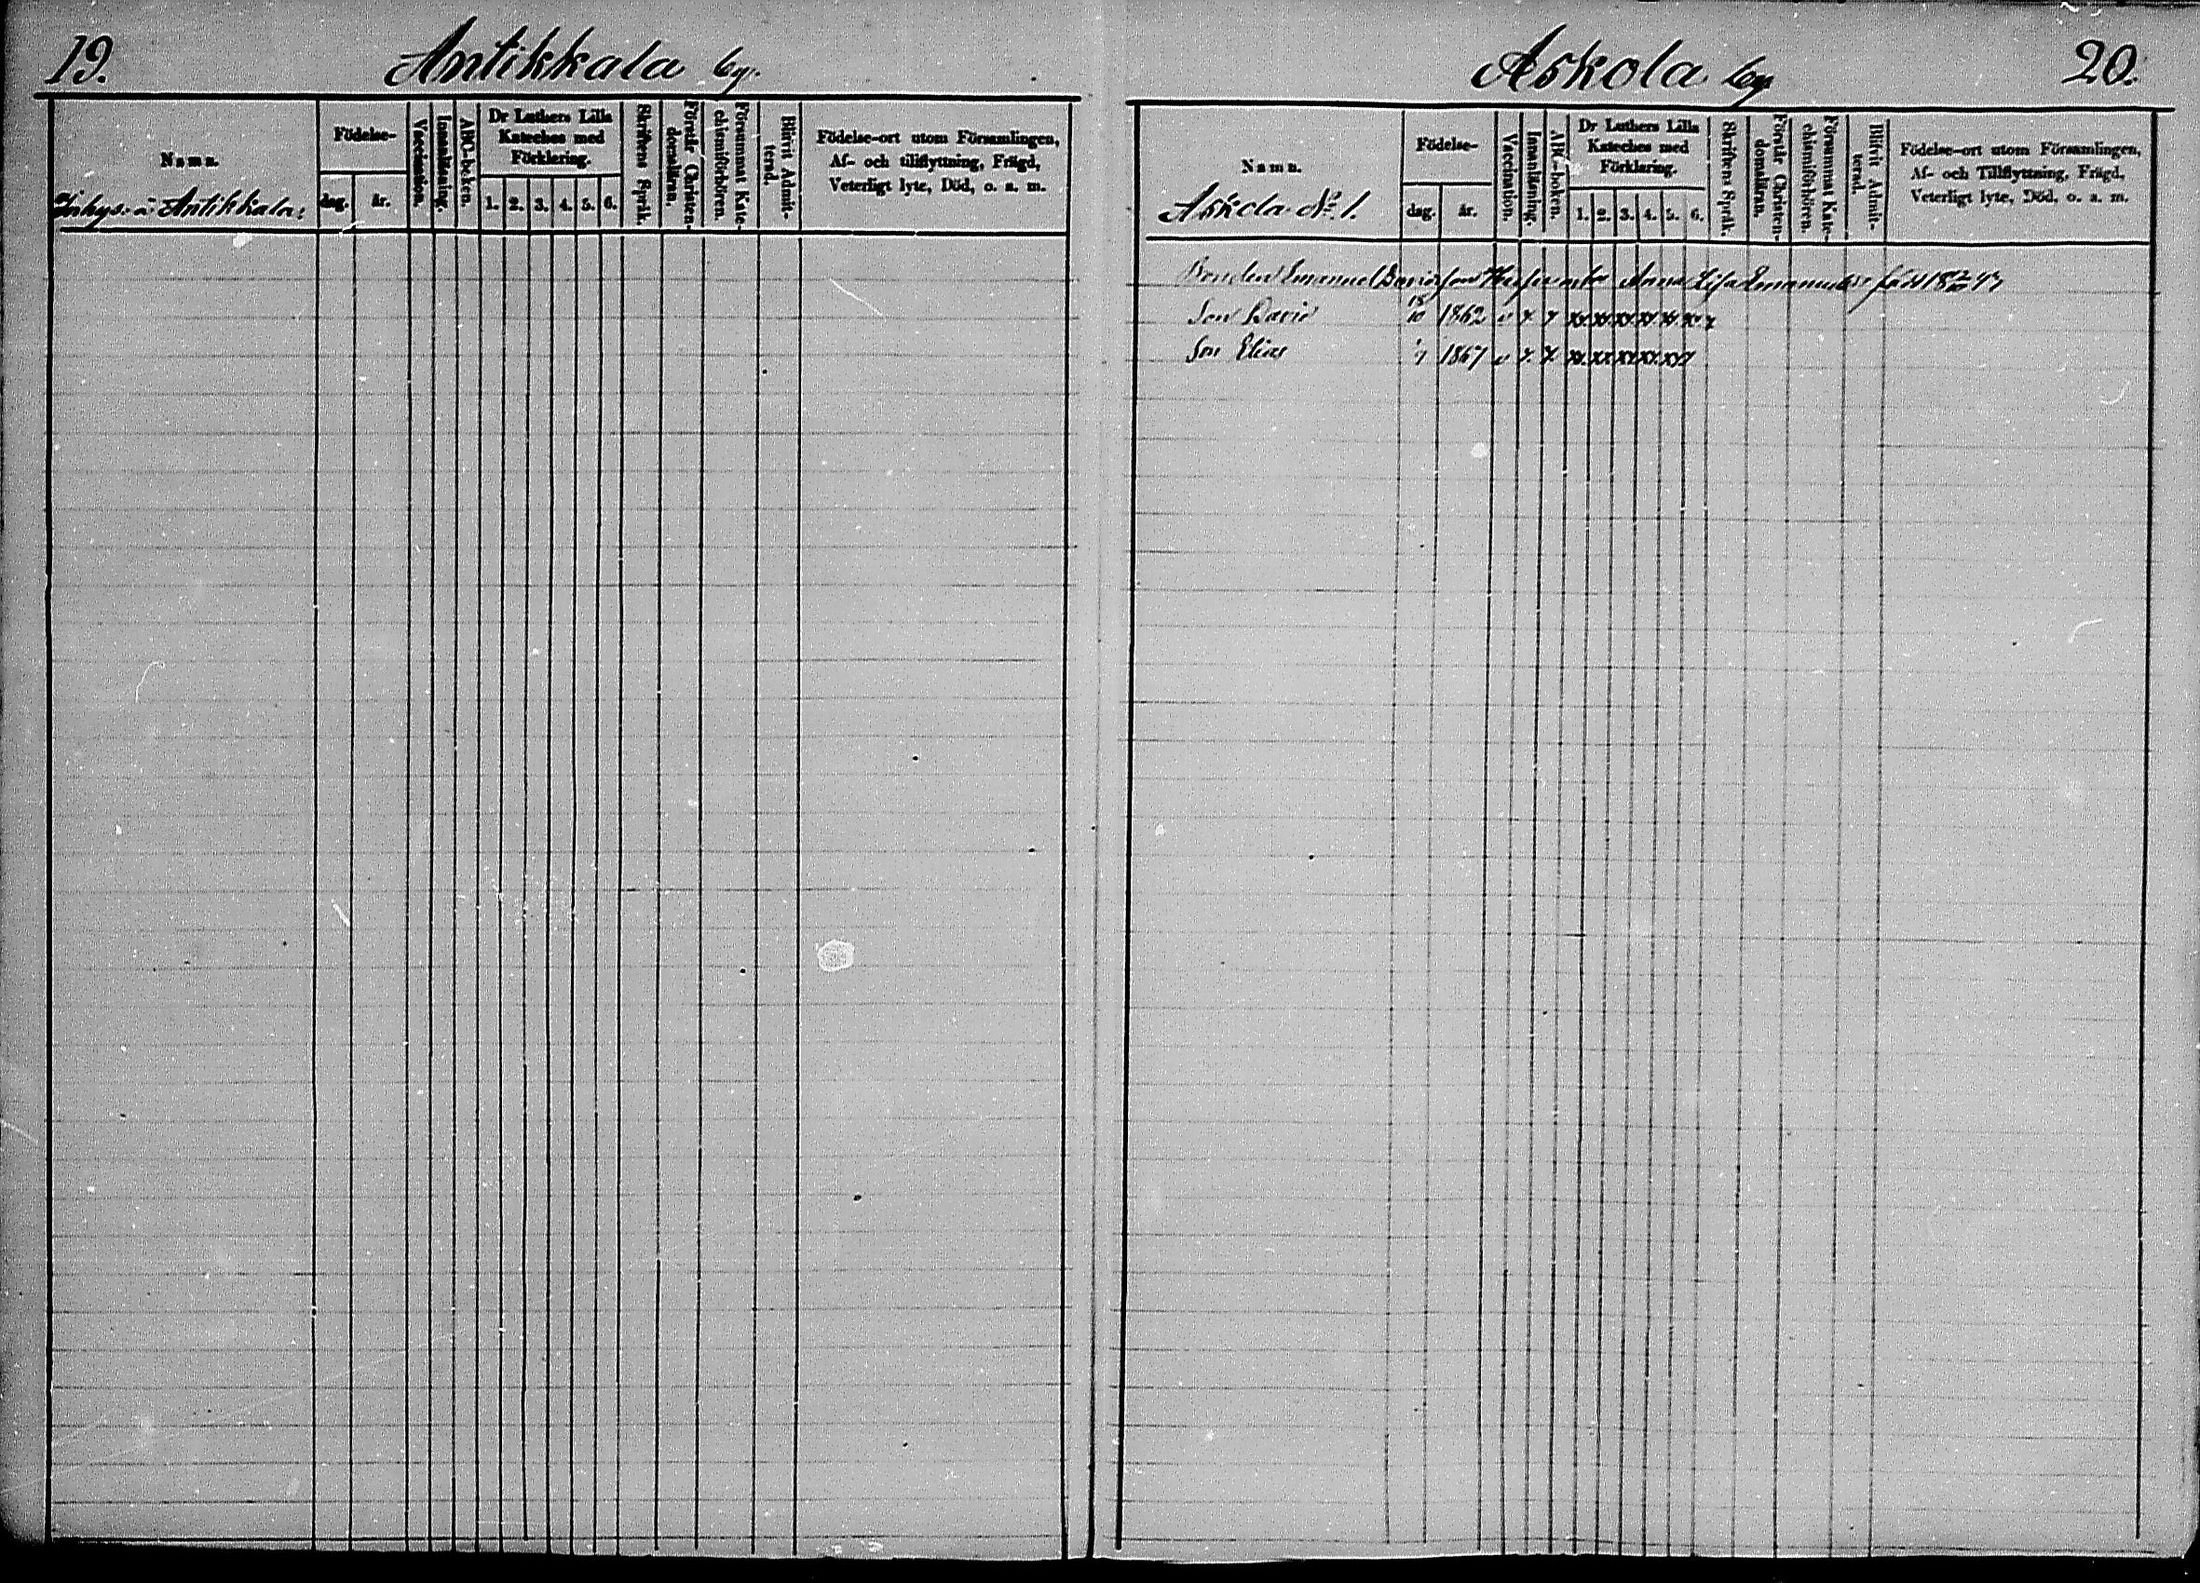 19.
Antikkala by.
Namn.
Födelse-
dag.
år.
Vaccination.
Innanläsning.
ABC-boken.
Dr Luthers Lilla
Kateches med
Förklaring.
1. 2. 3. 4. 5. 6.
Skriftens Språk.
Förstår Christen-
domsläran.
Försummat Kate-
chismiförhören.
Blifvit Admit-
terad.
Födelse-ort utom Församlingen,
Af- och tillflyttning, Frägd,
Veterligt lyte, Död, o. s. m.
Inhys. å Antikkala:
Askola by
20.
Namn.
Födelse-
dag.
år.
Vaccination.
Innanläsning.
ABC-boken.
Dr Luthers Lilla
Kateches med
Förklaring.
1. 2. 3. 4. 5. 6.
Skriftens Språk.
Förstår Christen-
domsläran.
Försummat Kate-
chismiförhören.
Blifvit Admit-
terad.
Födelse-ort utom Församlingen,
Af- och Tillflyttning, Frägd,
Veterligt lyte, Död, o. s. m.
Askola No 1.
Bonden Emanuel Davidson Anna Lisa född
Son David 18/10 1862 v x x xx xx xx xx xx xx x
Son Elias 1867 v x x xx xx xx xx xx